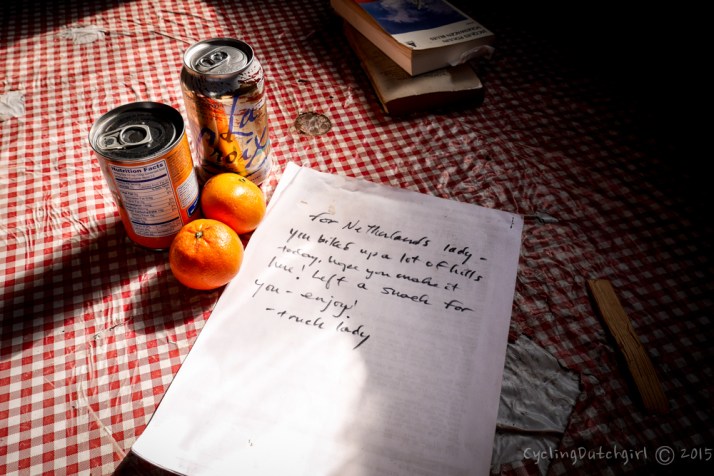 La
Croix
Nutrition Facts
- for Netherlands lady -
you biked up a lot of hills
today. Hope you make it
here! Left a snack for
you - enjoy!
- truck lady
CyclingDutchgirl © 2015